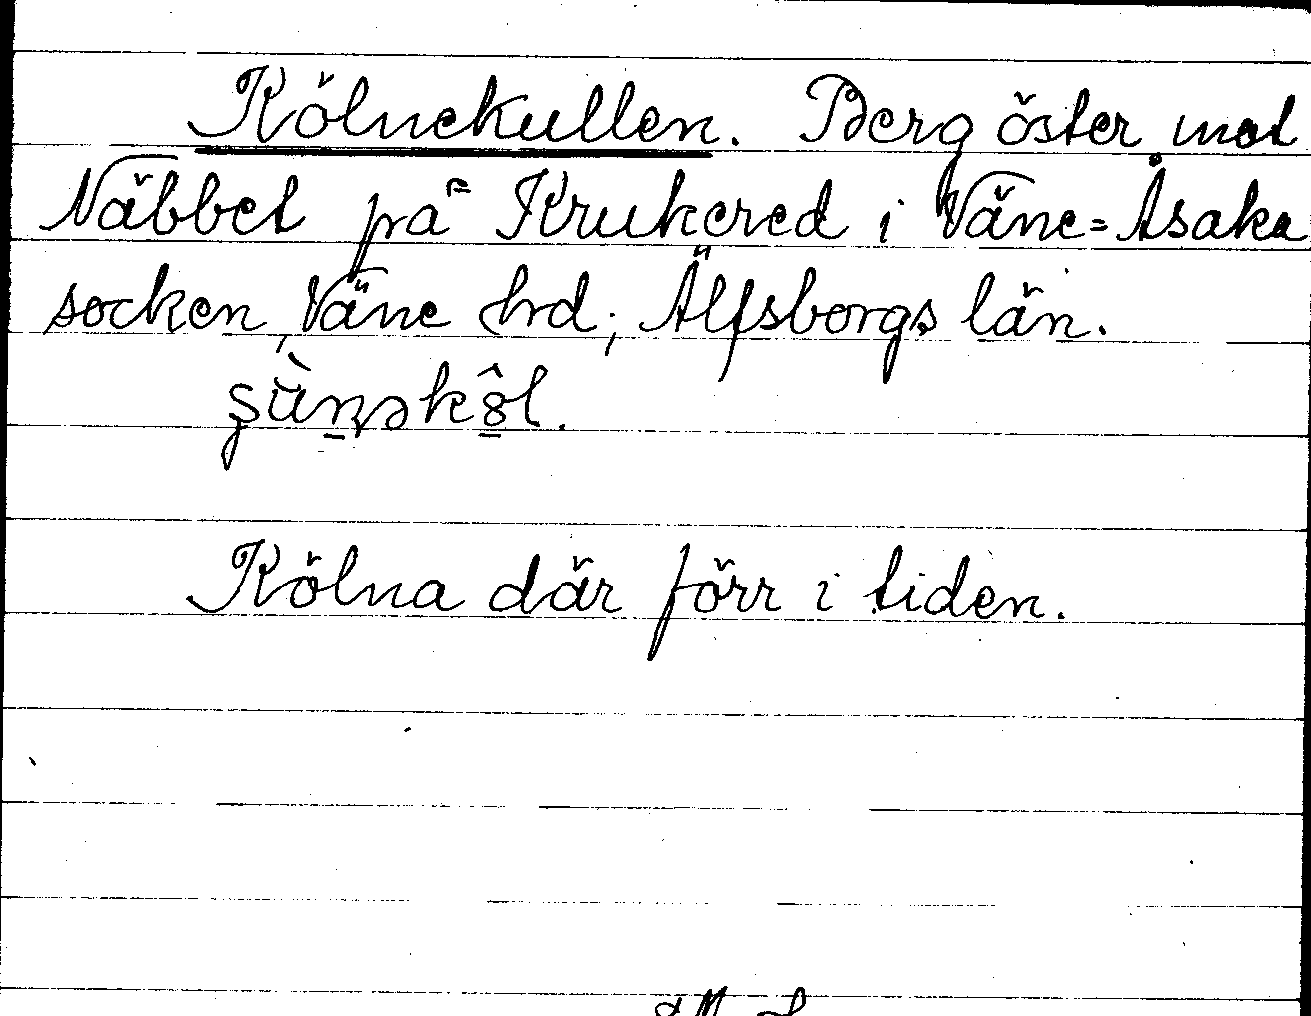 Kölnekullen. Berg öster mot
Näbbet på Krukered i Väne=Åsaka
socken, Väne hrd; Älfsborgs län.
Kölna där förr i tiden.